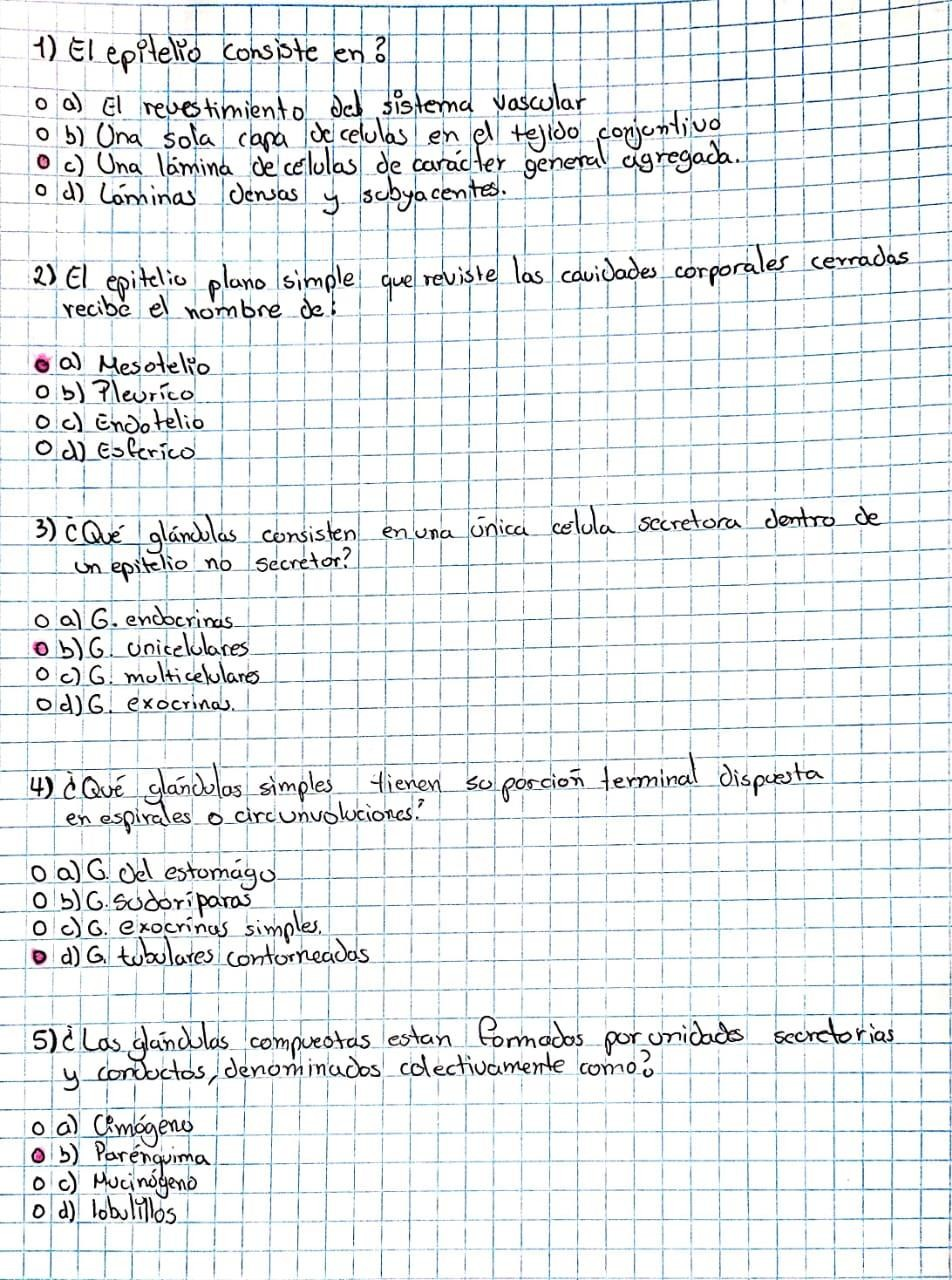 1) El epitelio consiste en?
o a) El revestimiento del sistema vascular
o b) Una sola capa de celulas en el tejido conjuntivo
o c) Una lámina de células de carácter general agregada.
o d) Láminas densas y subyacentes.
2) El epitelio plano simple que reviste las cavidades corporales cerradas
recibe el nombre de:
o a) Mesotelio
o b) Pleurico
o c) Endotelio
o d) Esferico
3) ¿Qué glándulas consisten en una única celula secretora dentro de
un epitelio no secretor?
o a) G. endocrinas
o b) G. unicelulares
o c) G. multicelulares
o d) G. exocrinas.
4) ¿Qué glándulas simples tienen su porción terminal dispuesta
en espirales o circunvoluciones?
o a) G. del estomágo
o b) G. sudoríparas
o c) G. exocrinas simples.
o d) G. tubulares contorneadas
5) ¿Las glándulas compuestas estan formados por unidads secretorias
y conductos, denominados colectivamente como?
o a) Cimógeno
o b) Parénquima
o c) Mucinógeno
o d) lobulillos